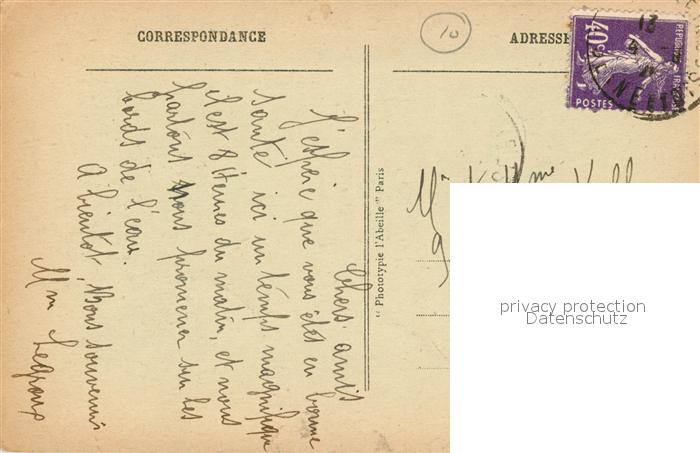 CORRESPONDANCE
10
ADRESSE
40c
REPUBLIQUE FRANÇAISE
POSTES
Chers amis
J'espère que vous êtes en bonne
santé ici un temps magnifique
il est 8 Heures du matin, et nous
partons nous promener sur les
bords de l'eau.
A bientôt, Bons souvenirs
Mme Legroux
"Phototypie l'Abeille" Paris
privacy protection
Datenschutz